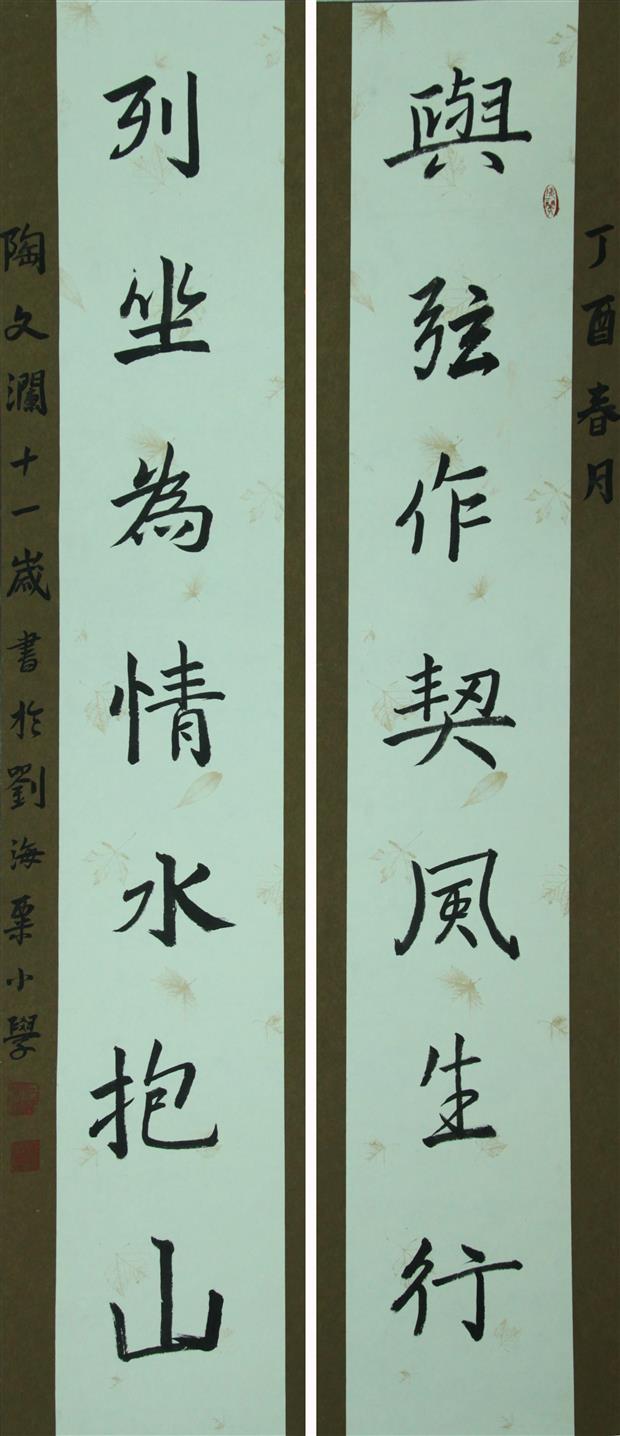 丁酉春月
與弦作契風生行
列坐為情水抱山
陶文瀾十一歲書於劉海粟小學